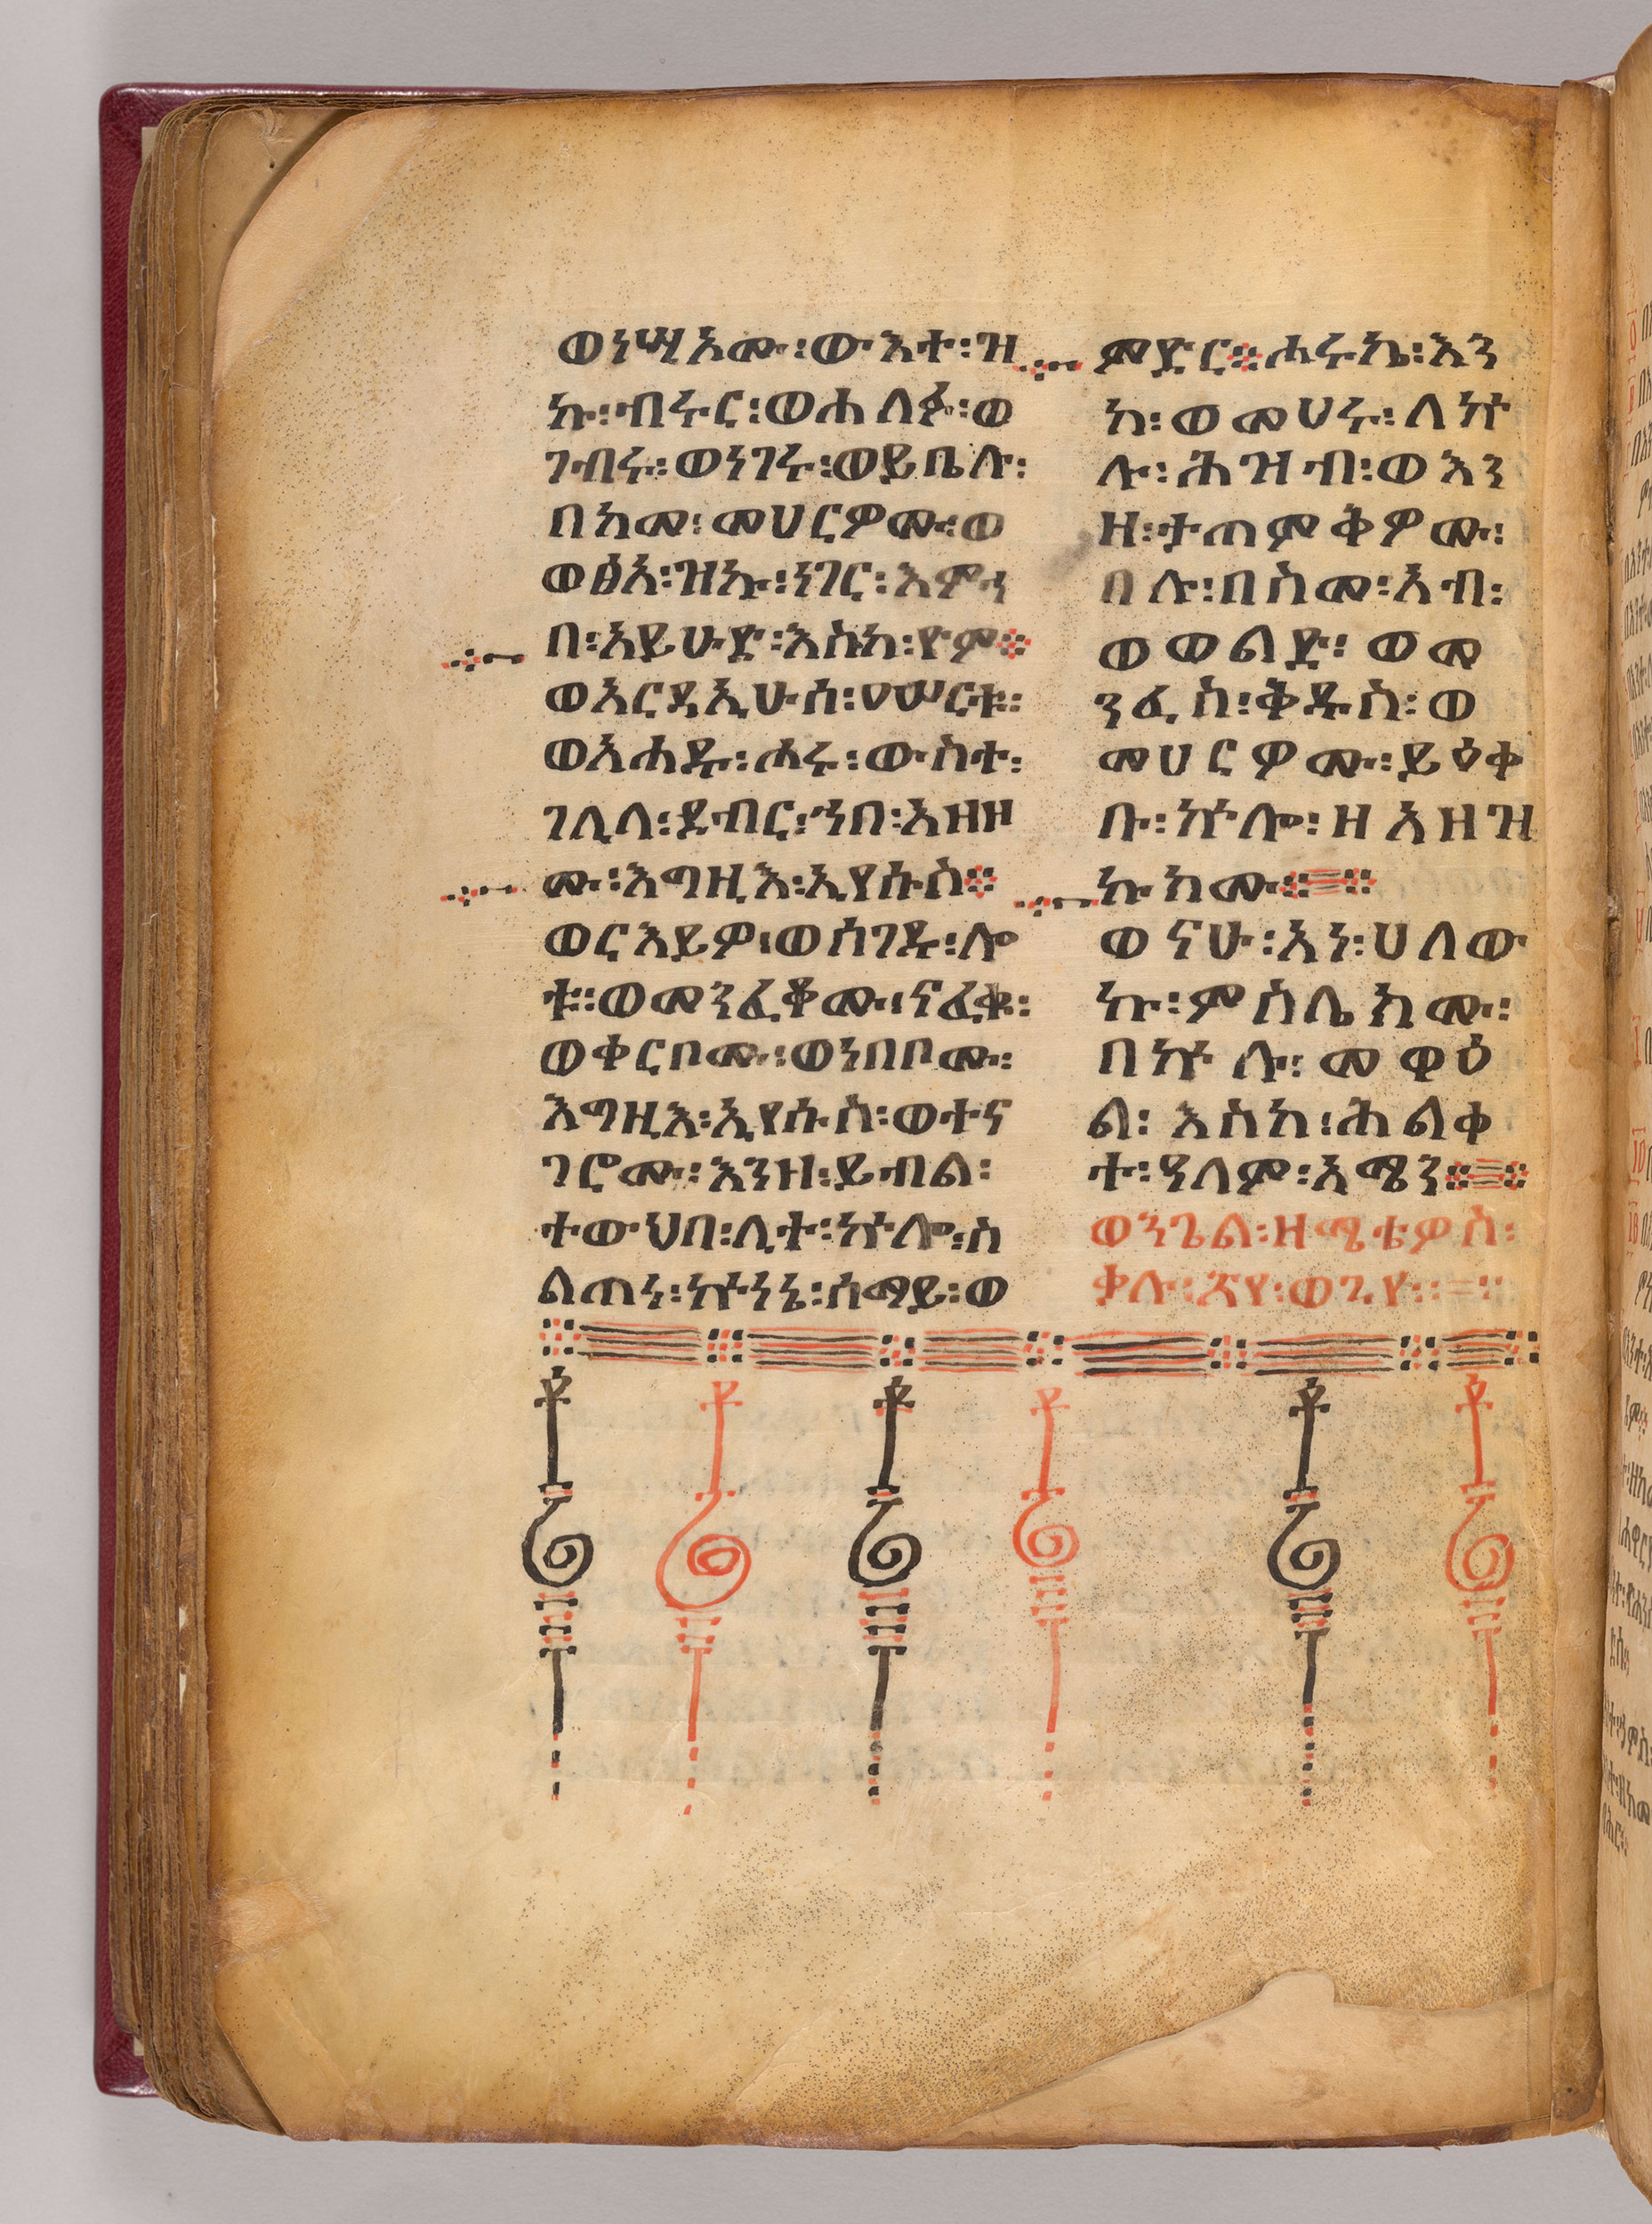 ወነሢአሙ፡ውእተ፡ዝ
ኩ፡ብሩር፡ወሐለፉ፡ወ
ገብሩ፡ወነገሩ፡ወይቤሉ፡
በከመ፡መሀርዎሙ፡ወ
ወፅአ፡ዝኩ፡ነገር፡እምኀ
በ፡አይሁድ፡እስከ፡ዮም፨
ወአርዳኢሁሰ፡፲ሠርቱ፡
ወአሐዱ፡ሐሩ፡ውስተ፡
ገሊላ፡ደብር፡ኀበ፡አዘዞ
ሙ፡እግዚእ፡ኢየሱስ፨
ወርእይዎ፡ወሰገዱ፡ሎ
ቱ፡ወመንፈቆሙ፡ናፈቁ፡
ወቀርቦሙ፡ወነበቦሙ፡
እግዚእ፡ኢየሱስ፡ወተና
ገሮሙ፡እንዘ፡ይብል፡
ተውህበ፡ሊተ፡ኵሎ፡ስ
ልጠነ፡ኵነኔ፡ሰማይ፡ወ
ምድር፨ሐሩኬ፡እን
ከ፡ወመሀሩ፡ለኵ
ሉ፡ሕዝብ፡ወእን
ዘ፡ታጠምቅዎሙ፡
በሉ፡በስመ፡አብ፡
ወወልድ፡ወመ
ንፈስ፡ቅዱስ፡ወ
መሀርዎሙ፡ይዕቀ
ቡ፡ኵሎ፡ዘአዘዝ
ኩክሙ፨
ወናሁ፡አነ፡ሀለው
ኩ፡ምስሌክሙ፡
በኵሉ፡መዋዕ
ል፡እስከ፡ሕልቀ
ተ፡ዓለም፡አሜን፨
ወንጌል፡ዘማቴዎስ፡